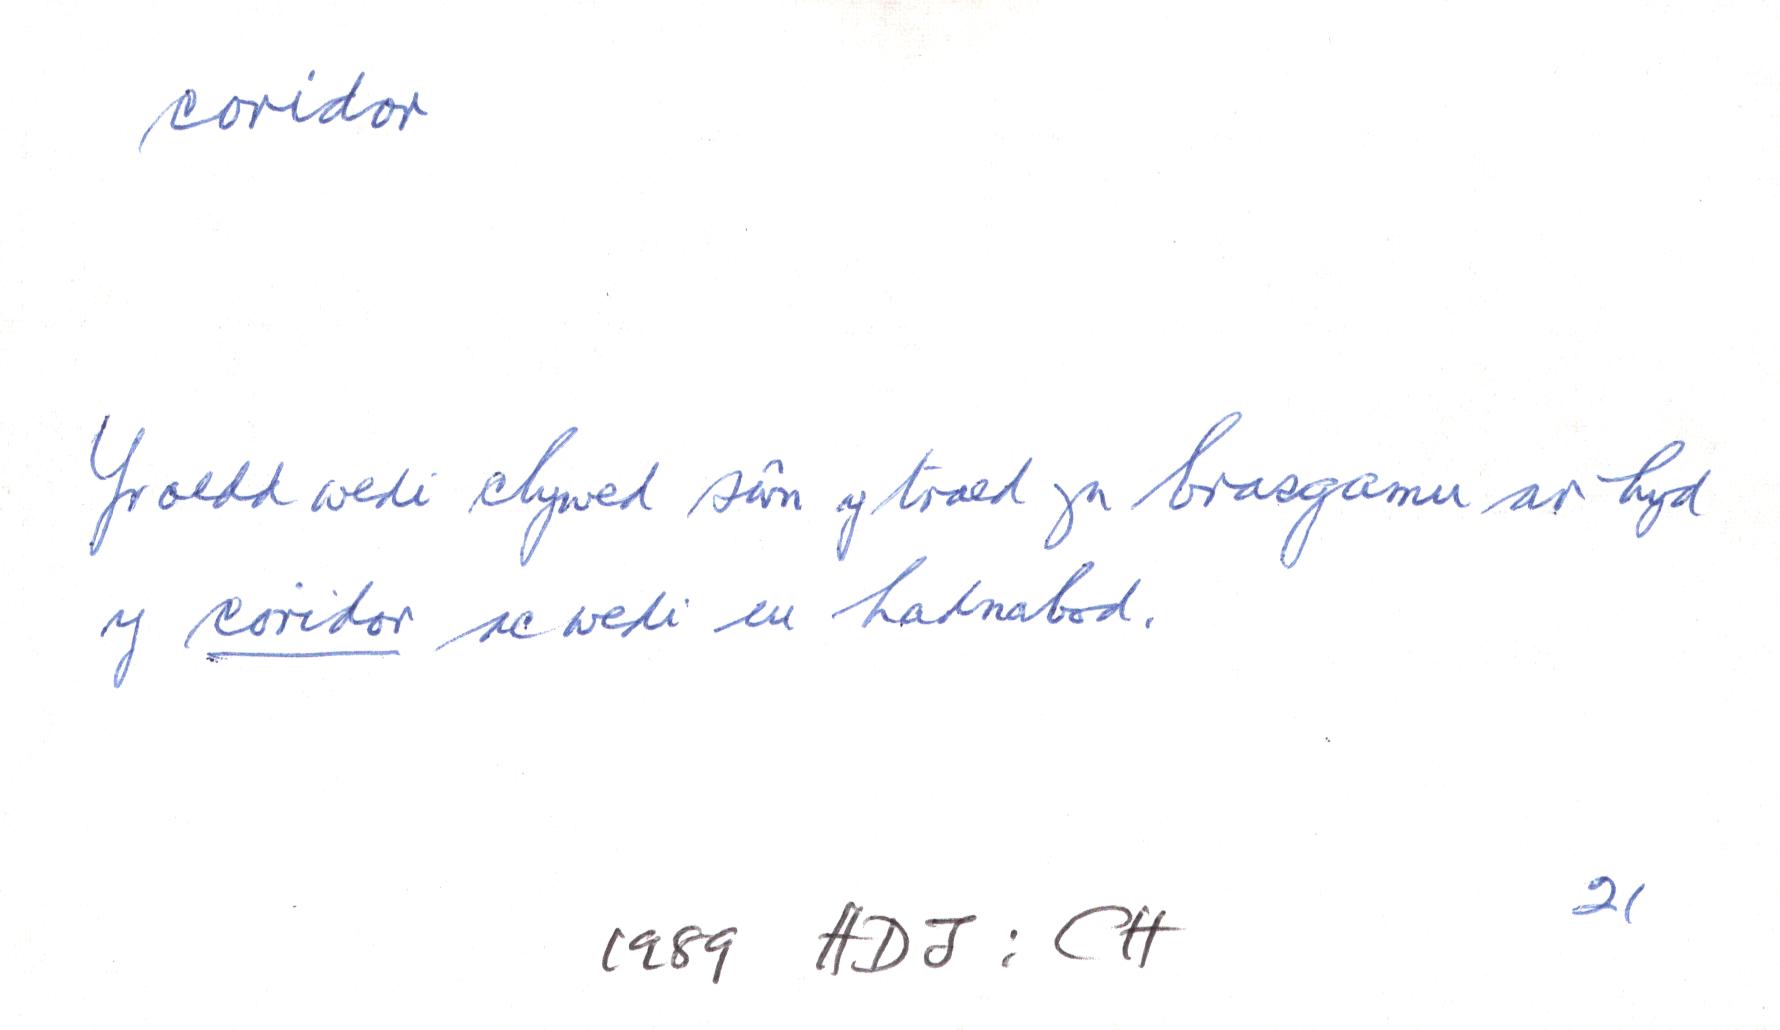 coridor
Yr oedd wedi clywed sŵn y traed yn brasgamu ar hyd
y coridor ac wedi eu hadnabod.
21
1989 HDJ : CH